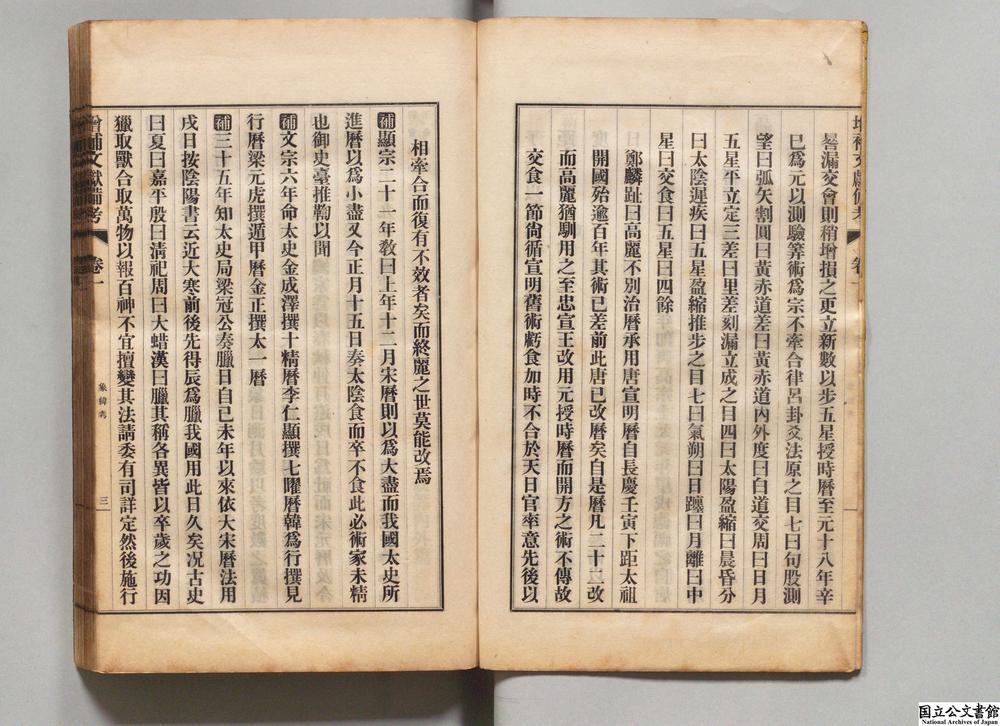 增補文獻備考 卷一
晷漏交會則稍增損之更立新數以步五星授時曆至元十八年辛
巳爲元以測驗筭術爲宗不牽合律呂卦爻法原之目七曰句股測
望曰弧矢割圓曰黃赤道差曰黃赤道內外度曰白道交周曰日月
五星平立定三差曰里差刻漏立成之目四曰太陽盈縮曰晨昏分
曰太陰遲疾曰五星盈縮推步之目七曰氣朔曰日躔曰月離曰中
星曰交食曰五星曰四餘
鄭麟趾曰高麗不別治曆承用唐宣明曆自長慶壬寅下距太祖
開國殆逾百年其術已差前此唐已改曆矣自是曆凡二十二改
而高麗猶馴用之至忠宣王改用元授時曆而開方之術不傳故
交食一節尙循宣明舊術虧食加時不合於天日官率意先後以
相牽合而復有不效者矣而終麗之世莫能改焉
補顯宗二十一年敎曰上年十二月宋曆則以爲大盡而我國太史所
進曆以爲小盡又今正月十五日奏太陰食而卒不食此必術家未精
也御史臺推鞫以聞
補文宗六年命太史金成澤撰十精曆李仁顯撰七曜曆韓爲行撰見
行曆梁元虎撰遁甲曆金正撰太一曆
補三十五年知太史局梁冠公奏臘日自己未年以來依大宋曆法用
戌日按陰陽書云近大寒前後先得辰爲臘我國用此日久矣况古史
曰夏曰嘉平殷曰淸祀周曰大蜡漢曰臘其稱各異皆以卒歲之功因
獵取獸合取萬物以報百神不宜擅變其法請委有司詳定然後施行
增補文獻備考 卷一 象緯考 三
国立公文書館
National Archives of Japan